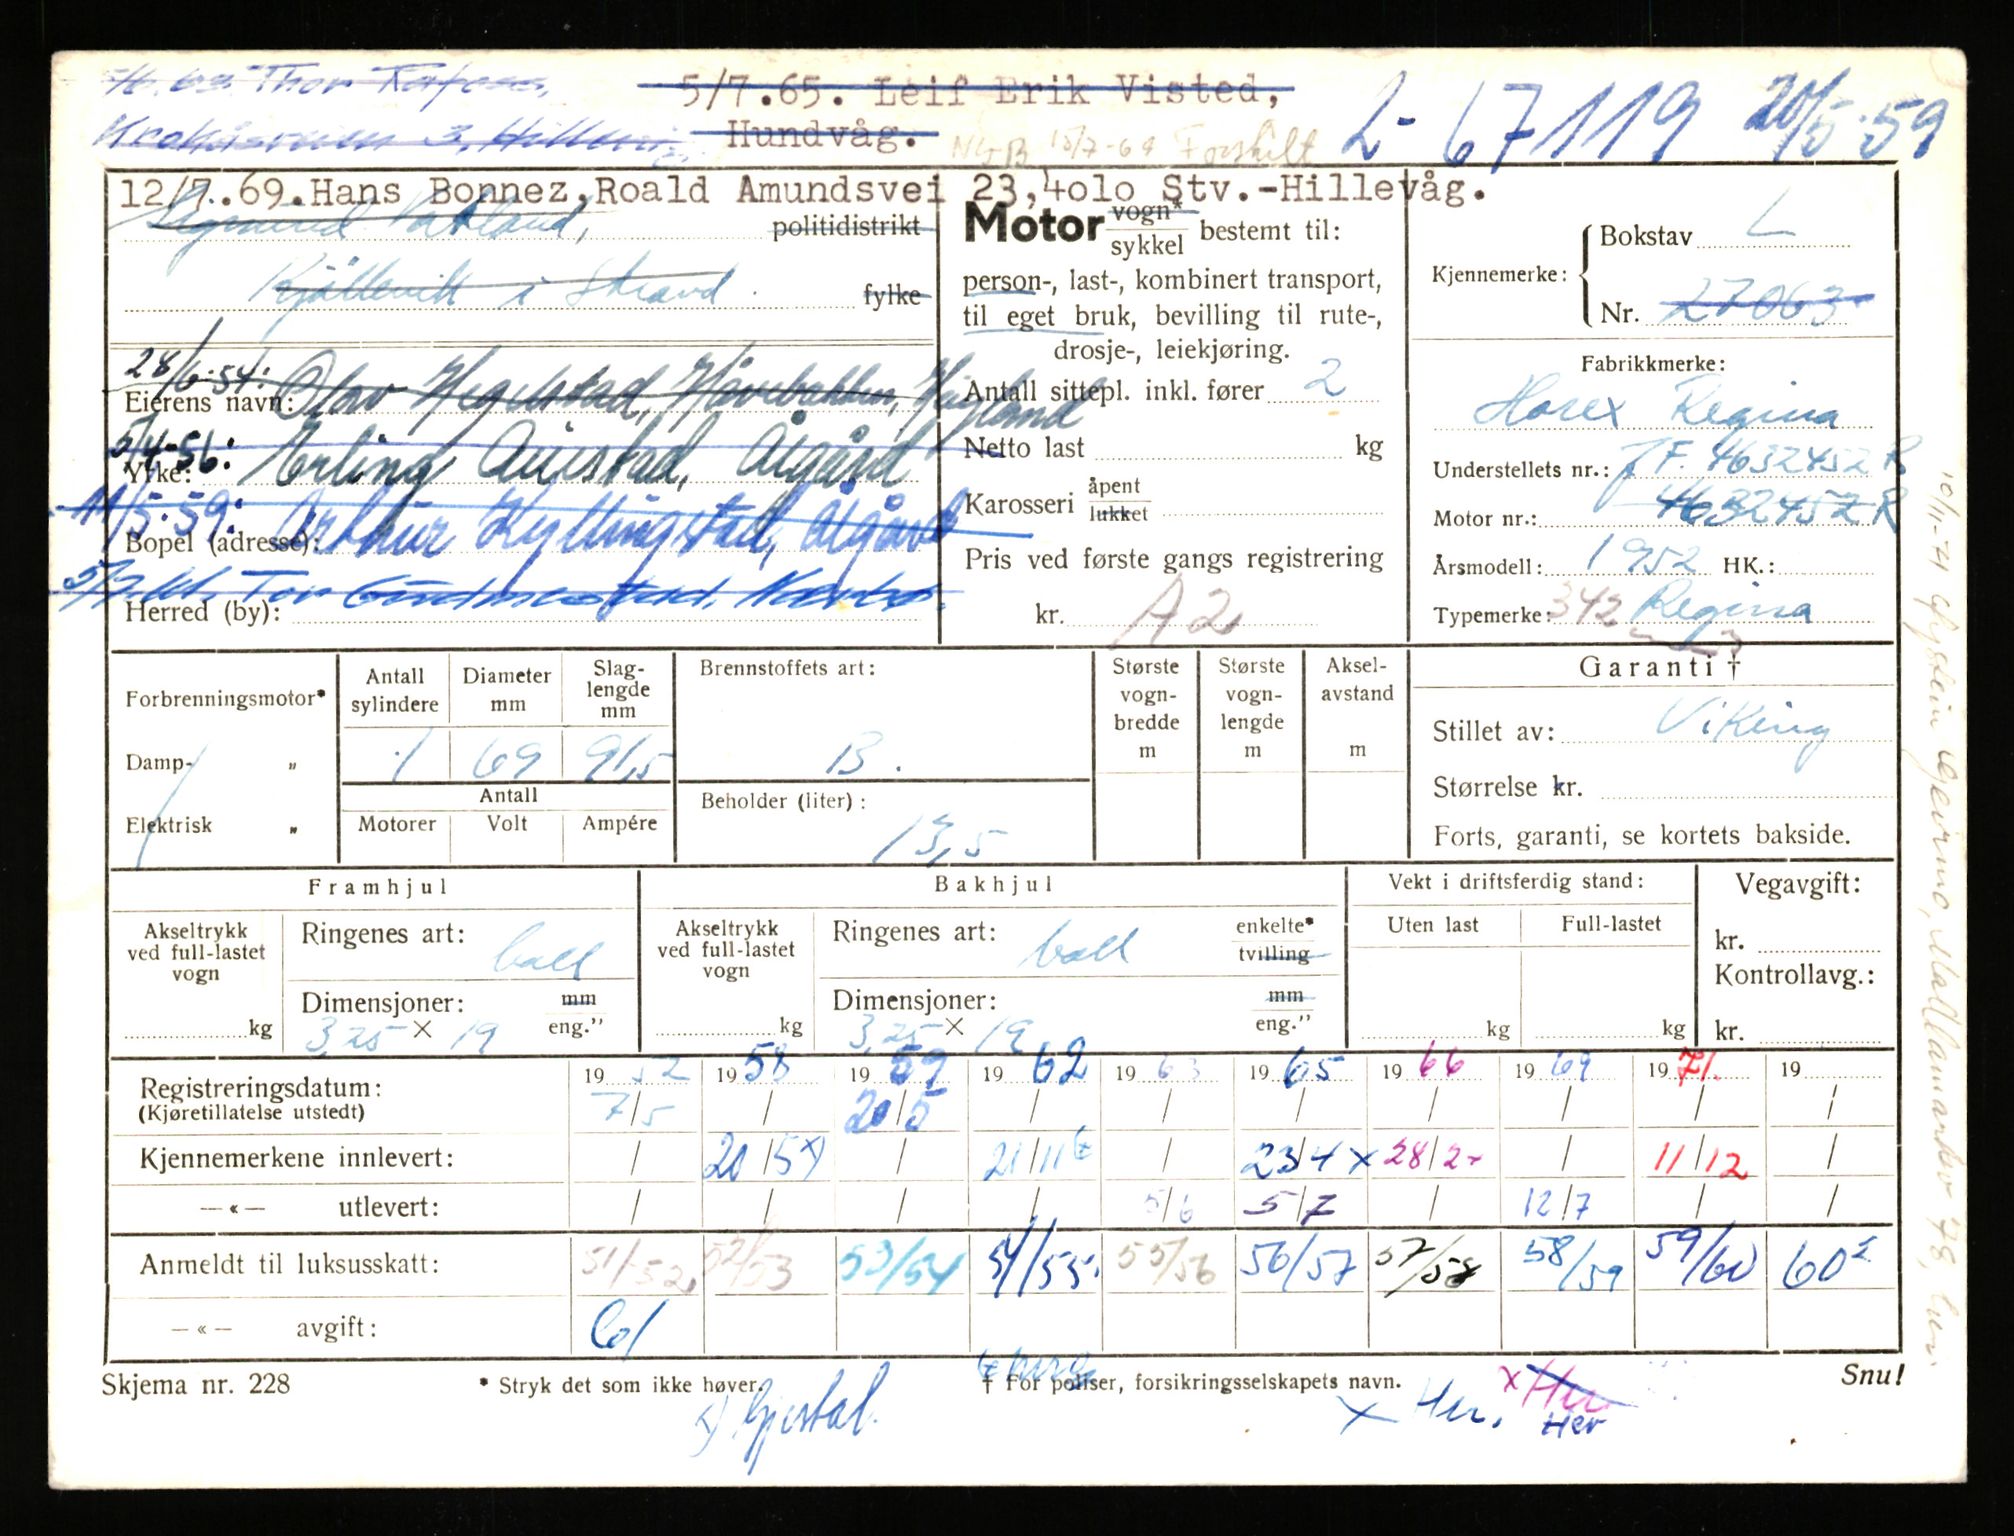 5/6.63. Thor
5/7.65. Leif Erik Visted,
Hundvåg.
15/7-69
L-67119 20/5-59
12/7.69.Hans Bonnez,Roald Amundsvei 23,4010 Stv.-Hillevåg.
politidistrikt
i Strand.
fylke
28/6-54:
Eierens navn: Olav Hegelstad,
5/4-56: Erling Auestad, Ålgård
Yrke:
11/5-59: Arthur Kyllingstad, Ålgård
Bopel (adresse):
Tor
Herred (by):
Motor vogn* sykkel bestemt til:
person-, last-, kombinert transport,
til eget bruk, bevilling til rute-,
drosje-, leiekjøring.
Antall sittepl. inkl. fører 2
Netto last kg
Karosseri åpent lukket
Pris ved første gangs registrering
kr. A2
Kjennemerke: Bokstav L
Nr. 27063
Fabrikkmerke:
Horex Regina
Understellets nr.: F. 4632452 R
Motor nr.: 4632452 R
Årsmodell: 1952 HK.:
Typemerke: 342 Regina
Forbrenningsmotor*
Damp- „
Elektrisk „
Antall sylindere
Diameter mm
Slaglengde mm
1 69 91,5
Antall
Motorer Volt Ampére
Brennstoffets art:
B.
Beholder (liter):
13,5
Største vogn-bredde m
Største vogn-lengde m
Aksel-avstand m
Garanti †
Stillet av: Viking
Størrelse kr.
Forts, garanti, se kortets bakside.
Framhjul
Akseltrykk ved full-lastet vogn kg
Ringenes art: ball
Dimensjoner: mm
3,25 X 19 eng.”
Bakhjul
Akseltrykk ved full-lastet vogn kg
Ringenes art: ball enkelte* tvilling
Dimensjoner: mm
3,25 X 19 eng.”
Vekt i driftsferdig stand:
Uten last Full-lastet
kg kg
Vegavgift:
kr.
Kontrollavg.:
kr.
Registreringsdatum: 1952 1958 1959 1962 1963 1965 1966 1969 1971. 19
(Kjøretillatelse utstedt) 7/5 / 20/5 / / / / / / /
Kjennemerkene innlevert: / 20/5 x) / 21/11 / 23/4 x 28/2 x / 11/12 /
—«— utlevert: / / / / 5/6 5/7 / 12/7 / /
Anmeldt til luksusskatt: 51/52, 52/53 53/54 54/55. 55/56 56/57 57/58 58/59 59/60 60
—«— avgift: 61
Skjema nr. 228 * Stryk det som ikke høver. † For poliser, forsikringsselskapets navn. Snu!
x) Gjestal.
x Her. x Her
Her
10/11-71